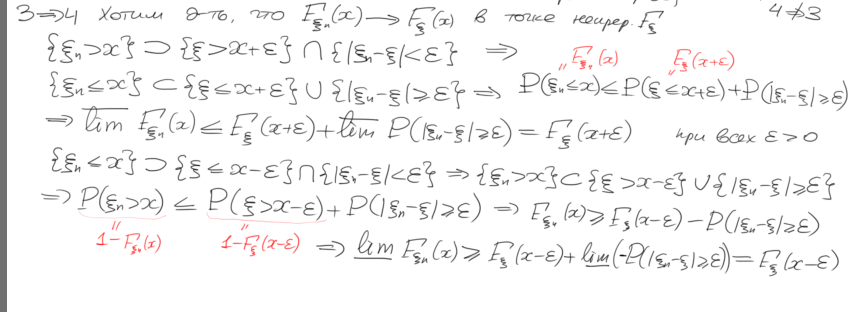 3⇒4 Хотим д-ть, что F_{ξ_n}(x) → F_ξ(x) в точке непрер. F_ξ 4⇏3
{ξ_n > x} ⊃ {ξ > x+ε} ∩ {|ξ_n-ξ| < ε} ⇒
" F_{ξ_n}(x) F_ξ(x+ε) "
{ξ_n ≤ x} ⊂ {ξ ≤ x+ε} ∪ {|ξ_n-ξ| ≥ ε} ⇒ P(ξ_n ≤ x) ≤ P(ξ ≤ x+ε) + P(|ξ_n-ξ| ≥ ε)
⇒ \overline{lim} F_{ξ_n}(x) ≤ F_ξ(x+ε) + \overline{lim} P(|ξ_n-ξ| ≥ ε) = F_ξ(x+ε) при всех ε > 0
{ξ_n ≤ x} ⊃ {ξ ≤ x-ε} ∩ {|ξ_n-ξ| < ε} ⇒ {ξ_n > x} ⊂ {ξ > x-ε} ∪ {|ξ_n-ξ| ≥ ε}
⇒ P(ξ_n > x) ≤ P(ξ > x-ε) + P(|ξ_n-ξ| ≥ ε) ⇒ F_{ξ_n}(x) ≥ F_ξ(x-ε) - P(|ξ_n-ξ| ≥ ε)
" 1-F_{ξ_n}(x) " 1-F_ξ(x-ε) ⇒ \underline{lim} F_{ξ_n}(x) ≥ F_ξ(x-ε) + \underline{lim}(-P(|ξ_n-ξ| ≥ ε)) = F_ξ(x-ε)